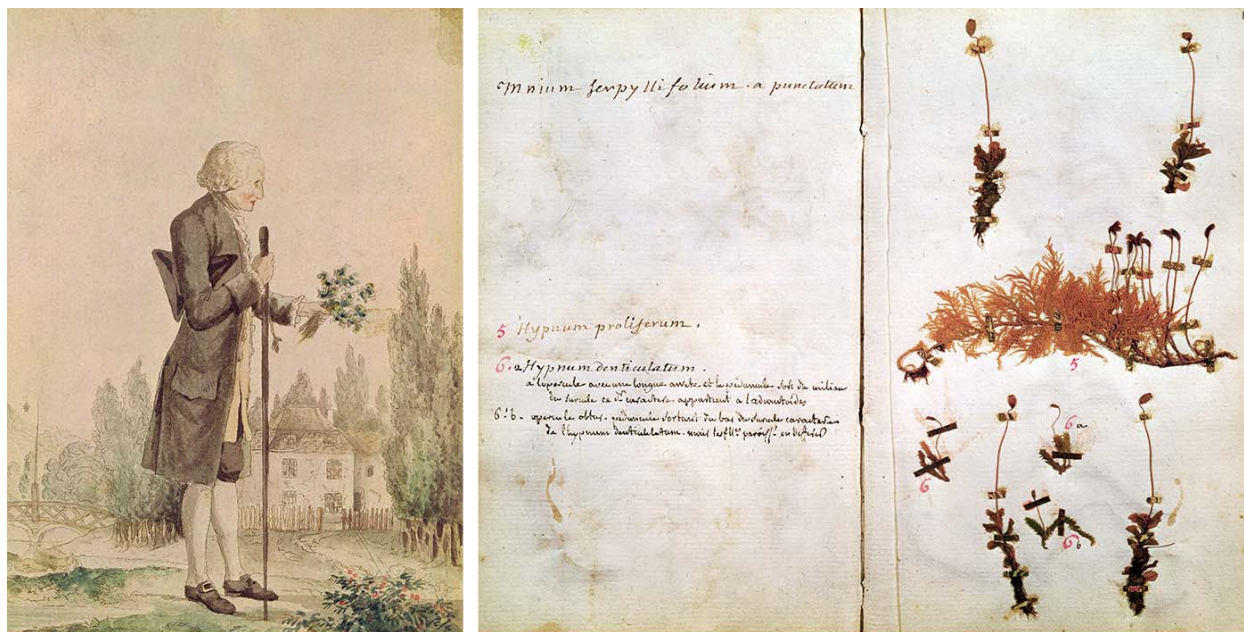 Mnium serpyllifolium. a punctatum
5 Hypnum proliferum.
6. a Hypnum denticulatum.
a. opercule avec une longue arrete et le peduncule sort du milieu
du surcule ce dr. caractere appartient a l'adiantoides
6. b. opercule obtus. peduncule sortant du bas du surcule caractere
de l'hypnum denticulatum. mais les
5
6 a
6
6 b